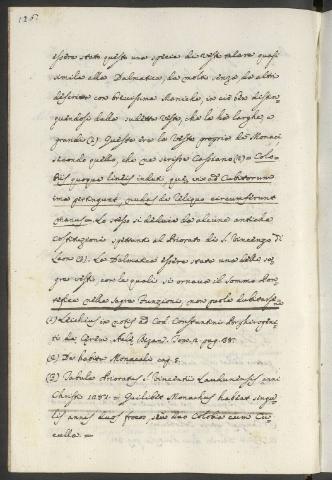 126.
essere stata questa una specie di veste talare quasi
simile alla Dalmatica, da molti senza, da altri
descritta con brevissime Maniche, in ciò ben distin
guendosi dalla suddetta veste, che le ha larghe, e
grandi (1). Questa era la veste propria de Monaci
secondo quello, che ne scrisse Cassiano (2) = Colo
biis quoque lineis induti, qui vix ad Cubitorum
ima pertingunt, nudas de reliquo circumferunt
manus = Lo stesso si deduce da alcune antiche
costituzioni spettanti al Priorato di S. Vincenzo di
Laon (3). La Dalmatica essere stata una delle sa
gre vesti, con le quali si ornava il Sommo Pon
tefice nelle Sagre Funzioni, non puole dubitarsi
(1) Leichius in notis ad Constantini Porphirogeni
ti de Cerem. Aulæ Bizan. Tom. 2. pag. 88.
(2) De habitu Monacali cap. 5.
(3) Tabula Prioratus S. Vincentii Laudunensis anni
Christi 1282. = Quilibet Monachus habeat singu
lis annis duos frocos, seu duo Colobia cum Cu
culla =